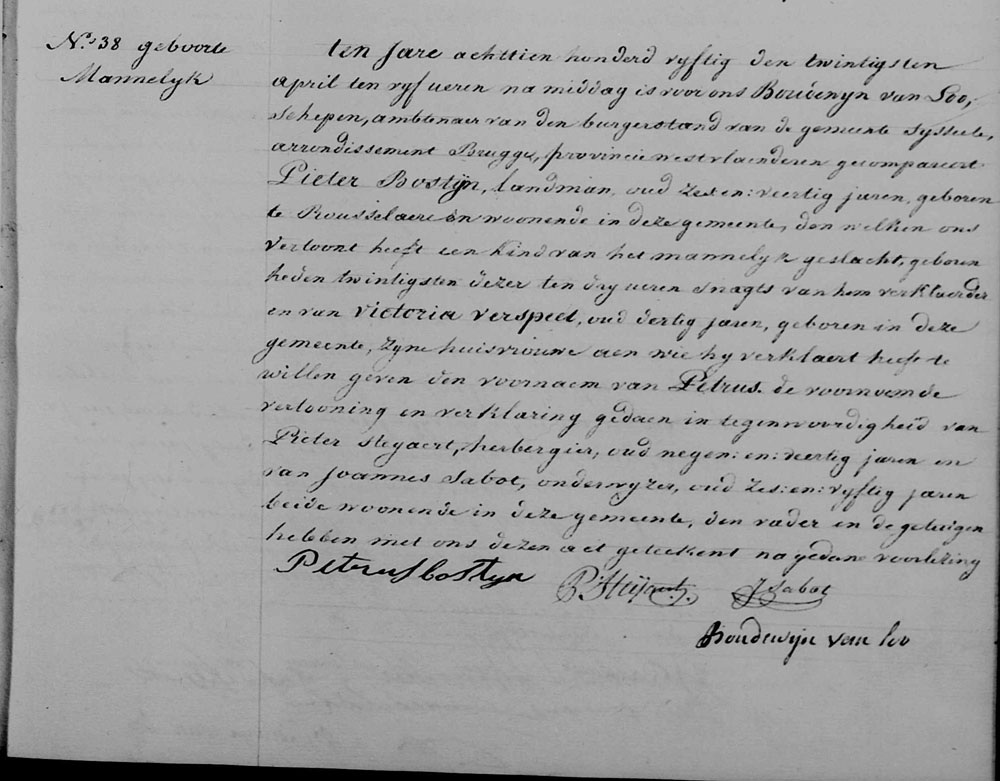 N.º 38 geboorte
Mannelyk
ten Jare achttien honderd vyftig den twintigsten
april ten vyf ueren namiddag is voor ons Boudewyn van Loo,
Schepen, ambtenaer van den burgerstand van de gemeente Sysseele,
arrondissement Brugge, provincie westvlaenderen gecompareert
Pieter Bostÿn, landman, oud zes: en: veertig jaren, geboren
te Rousselaere en woonende in deze gemeente, den welken ons
vertoont heeft een kind van het mannelyk geslacht, geboren
heden twintigsten dezer ten dry ueren snagts van hem verklaerder
en van Victoria Verspeel, oud dertig jaren, geboren in deze
gemeente, zyne huisvrouwe aen wie hy verklaert heeft te
willen geven den voornaem van Petrus. de voornoemde
vertooning en verklaring gedaen in tegenwoordigheid van
Pieter Steyaert, herbergier, oud negen: en: veertig jaren en
van Joannes Sabot, onderwyzer, oud zes: en: vyftig jaren
beide woonende in deze gemeente, den vader en de getuigen
hebben met ons dezen act geteekent na gedane voorlezing
Petrus bostyn
P. Steÿaert J Sabot
Boudewijn van loo